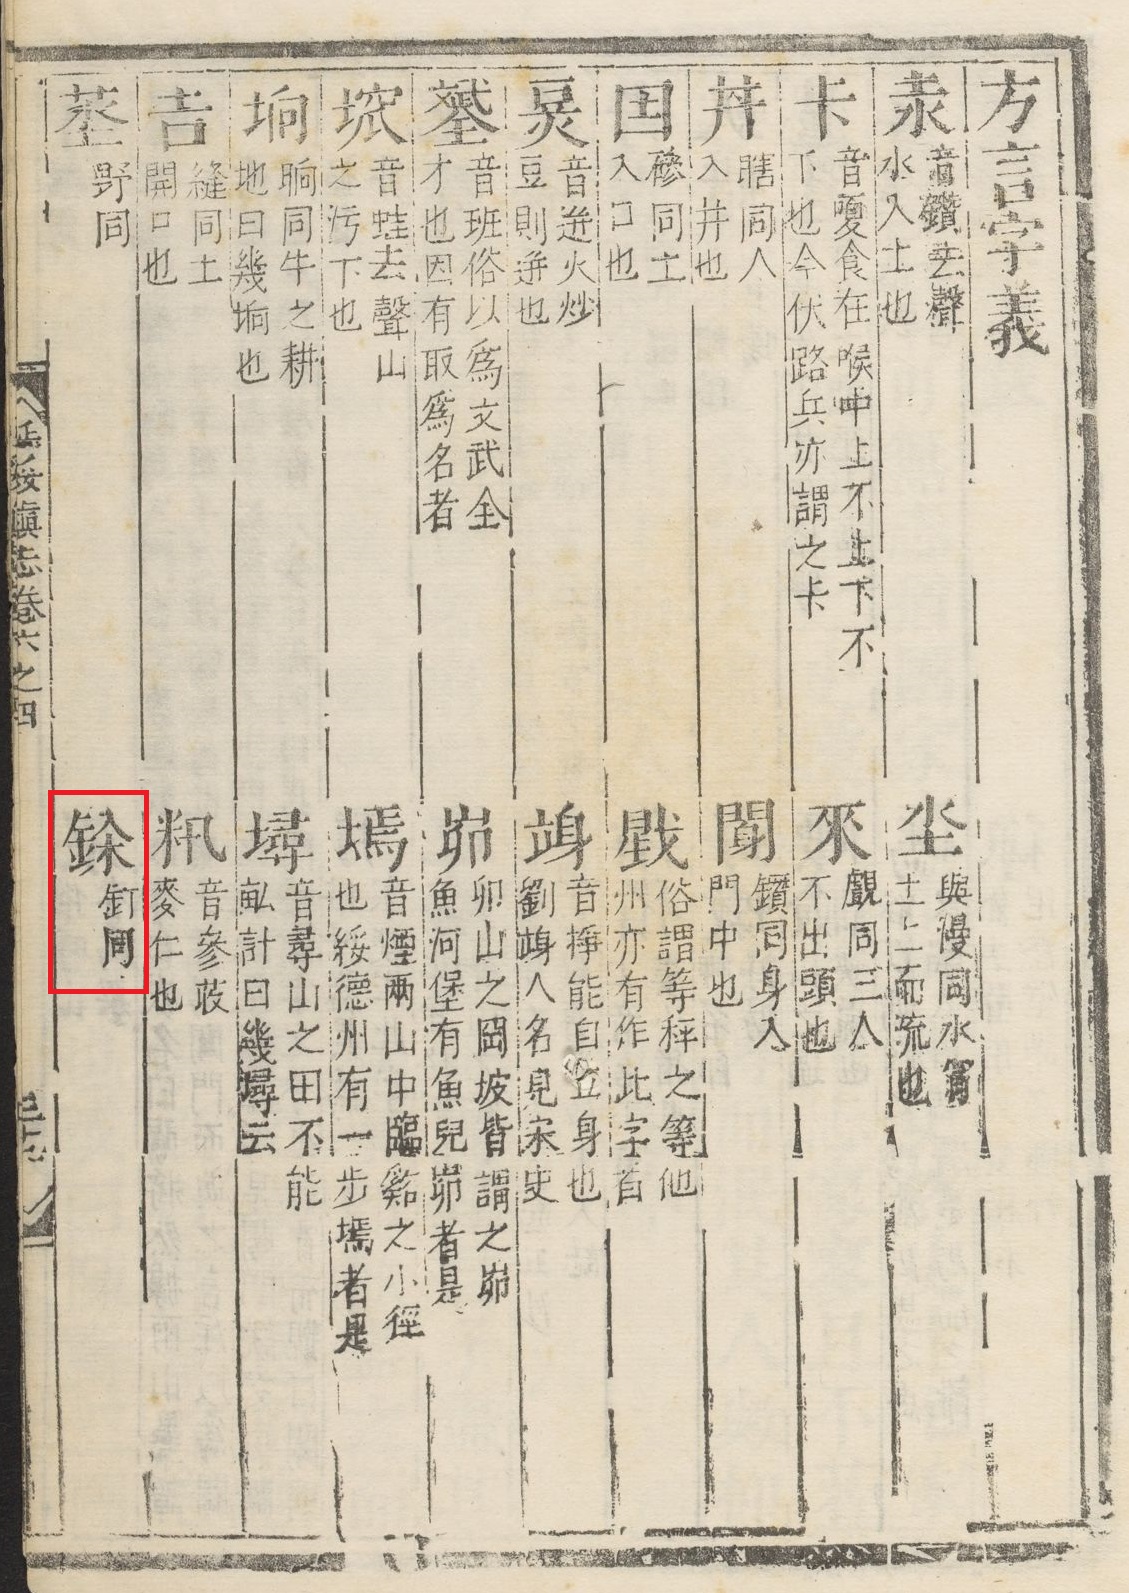 方言字義
汖 音鑽去聲水入土也
卡 音戞食在喉中上不上下不下也今伏路兵亦謂之卡
丼 瞎同人入井也
囯 磣同土入口也
炅 音迸火炒豆則迸也
音班俗以爲文武全才也因有取爲名者
音蛙去聲山之污下也
垧 晌同牛之耕地曰幾垧也
吉 縫同土開口也
野同
與漫同水甯土上而流也
覷同三人不出頭也
鑽同身入門中也
戥 俗謂等秤之等他州亦有作此字者
竧 音掙能自立身也劉竧人名見宋史
峁 卯山之岡坡皆謂之峁魚河堡有魚兒峁者是
墕 音煙兩山中臨谿之小徑也綏德州有一步墕者是
㙷 音尋山之田不能畝計曰幾㙷云
籸 音參䓃麥仁也
釘同
延綏鎭志卷六之四